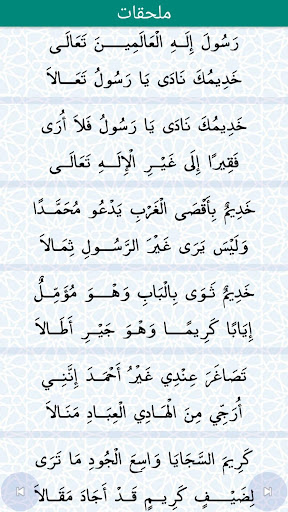 ملحقات
رَسُولَ إِلَـهِ الْعَالَمِيـــنَ تَعَالَـى
خَدِيمُكَ نَادَى يَا رَسُولُ تَعَـالاَ
خَدِيمُكَ نَادَى يَا رَسُولُ فَلاَ أُرَى
فَقِيرًا إِلَى غَيْرِ الْإِلَـهِ تَعَالَـى
خَدِيمٌ بِأَقْصَى الْغَرْبِ يَدْعُو مُحَمَّـدًا
وَلَيْسَ يَرَى غَيْرَ الرَّسُـولِ ثِمَـالاَ
خَدِيمٌ ثَوَى بِالْبَابِ وَهْـوَ مُؤَمِّـلٌ
إِيَابًا كَرِيمًـا وَهْوَ جَيْـرِ أَطَـالاَ
تَصَاغَرَ عِنْدِي غَيْرُ أَحْمَدَ إِنَّنِـي
أُرَجِّي مِنَ الْهَـادِي الْعِبَـادِ مَنَـالاَ
كَرِيمَ السَّجَايَا وَاسِعَ الْجُودِ مَا تَرَى
لِضَيْـفٍ كَرِيـمٍ قَدْ أَجَادَ مَقَـالاَ